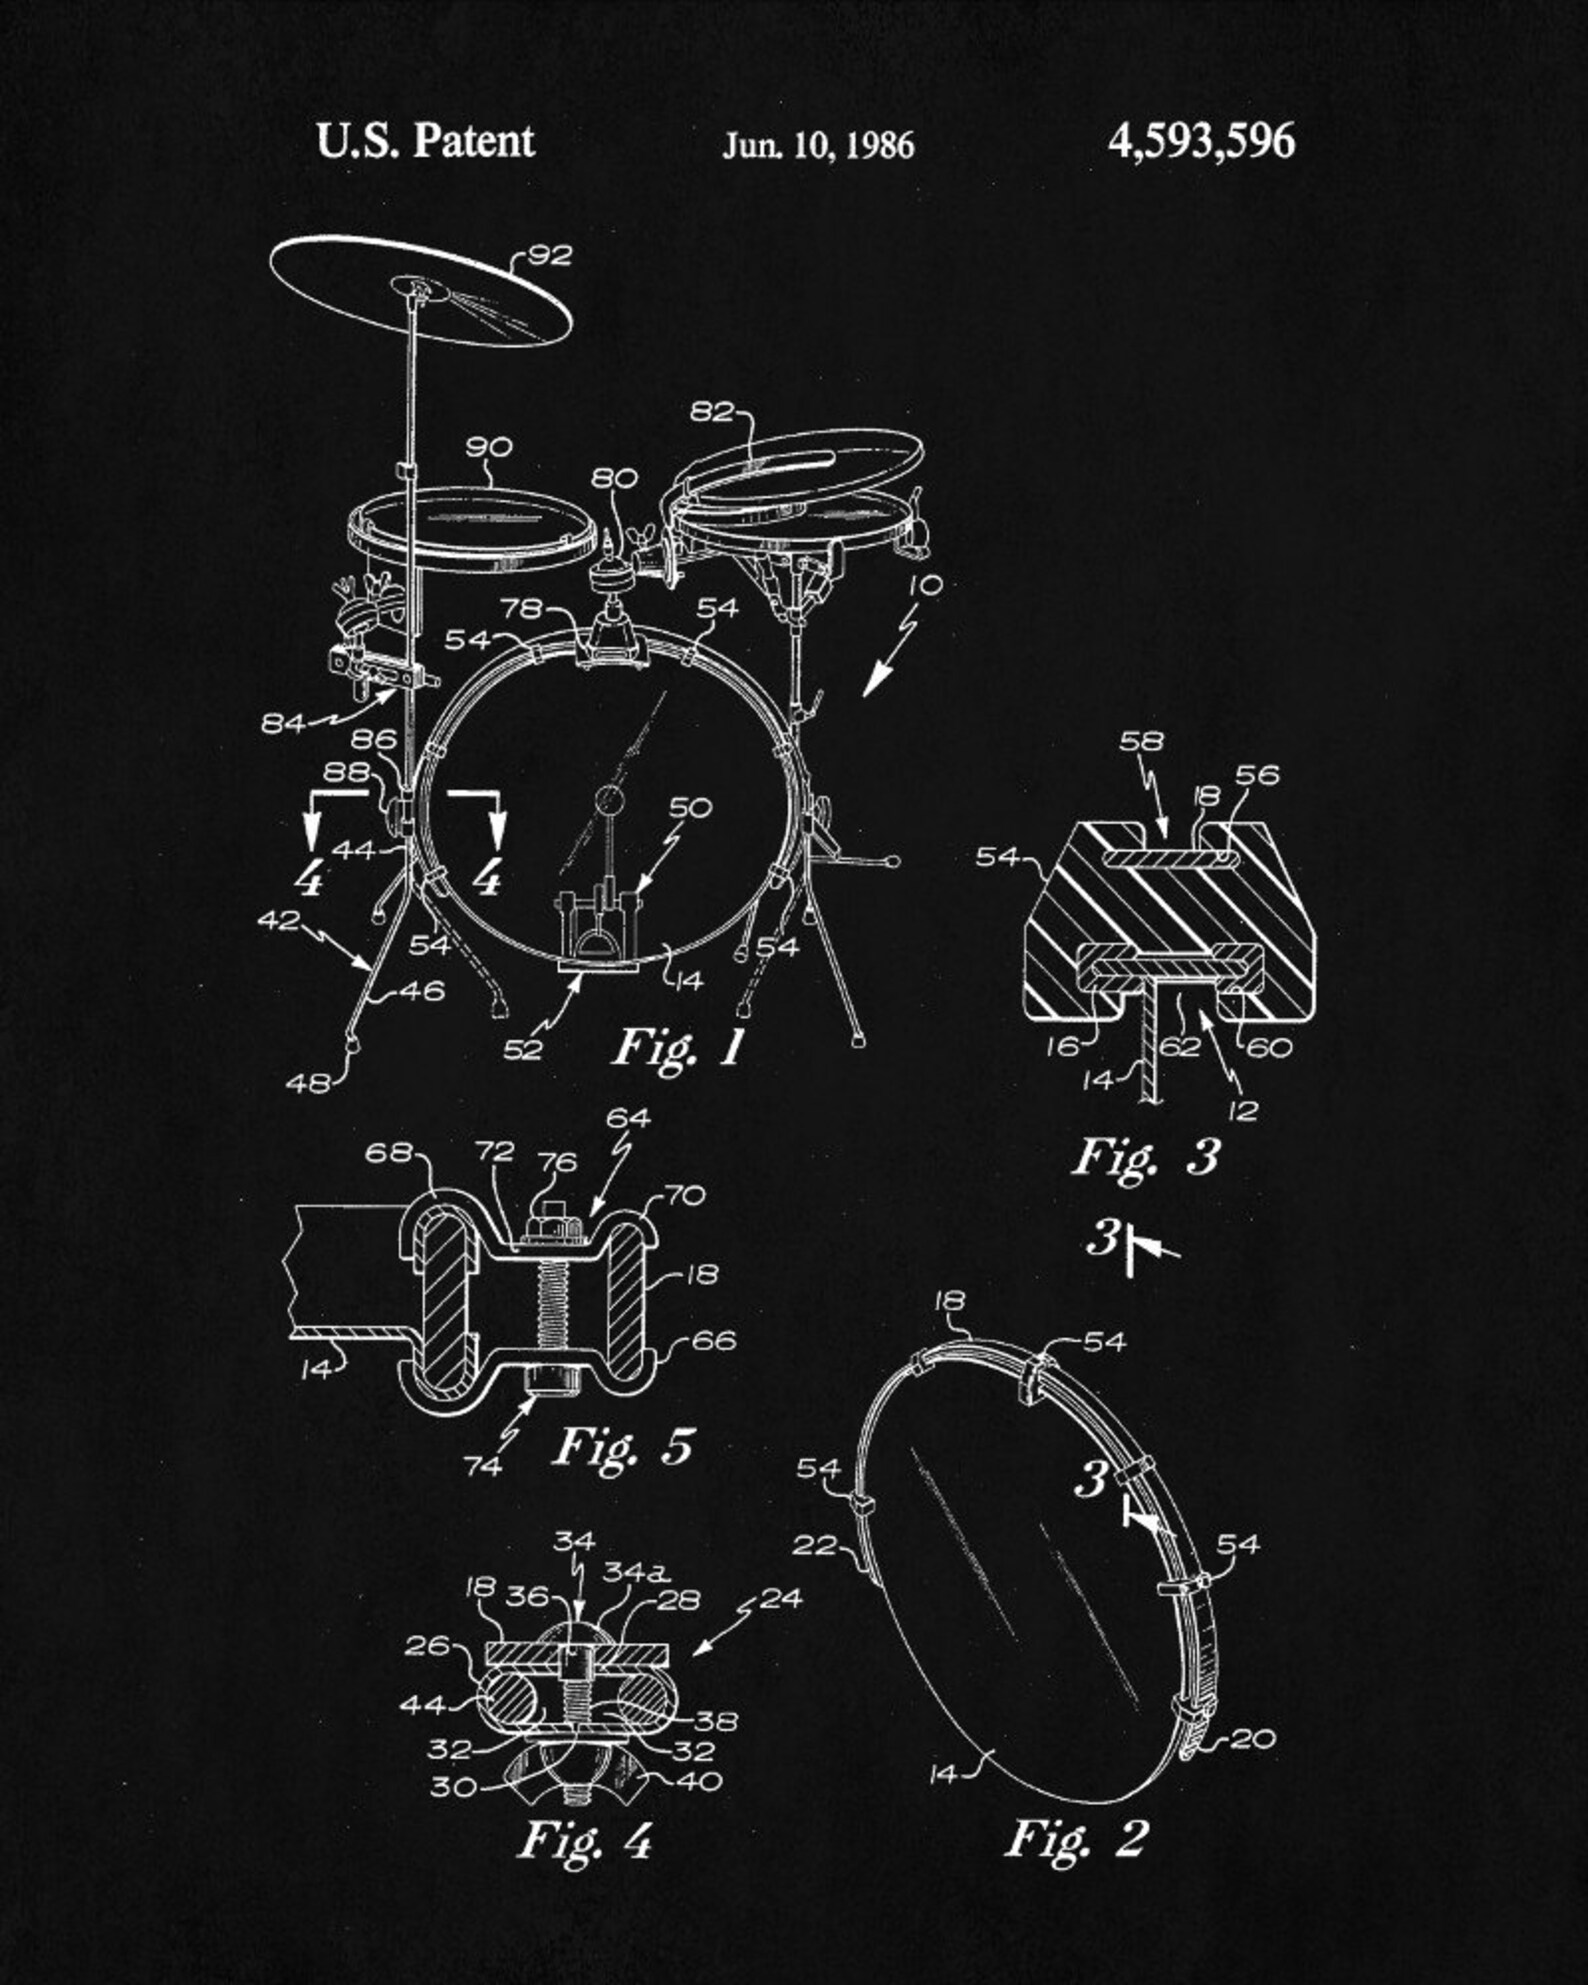 U.S. Patent Jun. 10, 1986 4,593,596
92
82
90
80
10
78 54
54
84
86
58
88 56
18
50
44 54
4 4
42
54 54
46 14
16 62 60
52 Fig. 1
14
48 12
64
Fig. 3
68 72 76
70
3
18
18
66 54
14
Fig. 5
74
54 3
34 22 54
34a
18 36 28 24
26
44
38
32 32 20
30 40 14
Fig. 4 Fig. 2